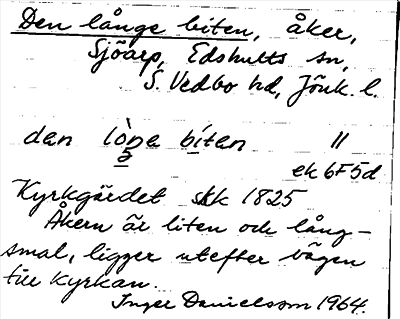 Den långe biten, åker,
Sjöarp, Edshults sn,
S. Vedbo hd, Jönk. l.
den lòŋa bítan "
ek 6F5d
Kyrkgärdet skk 1825
Åkern är liten och lång-
smal, ligger utefter vägen
till kyrkan.
Inger Danielsson 1964.